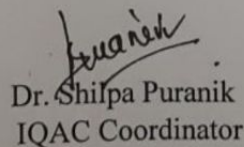 Dr. Shilpa Puranik
IQAC Coordinator